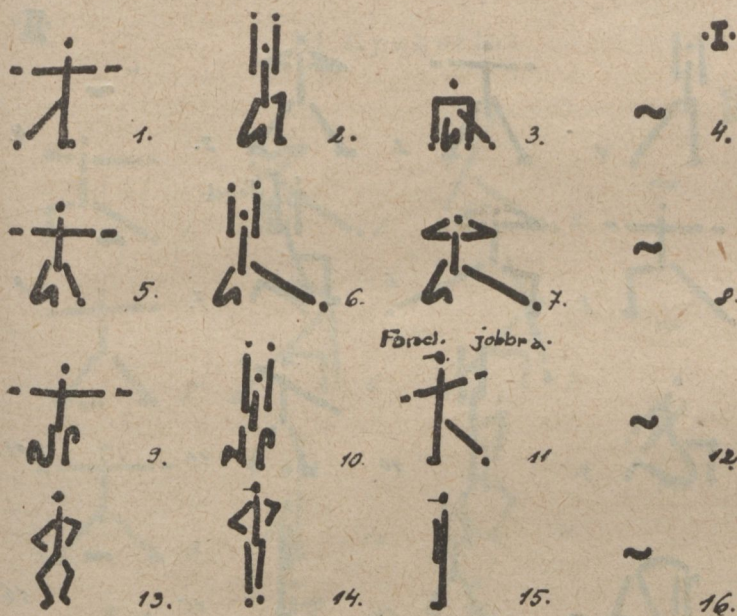 ·I·
1. 2. 3. ~ 4.
5. 6. 7. ~ 8.
Ford. jobbra.
9. 10. 11 ~ 12.
13. 14. 15. ~ 16.